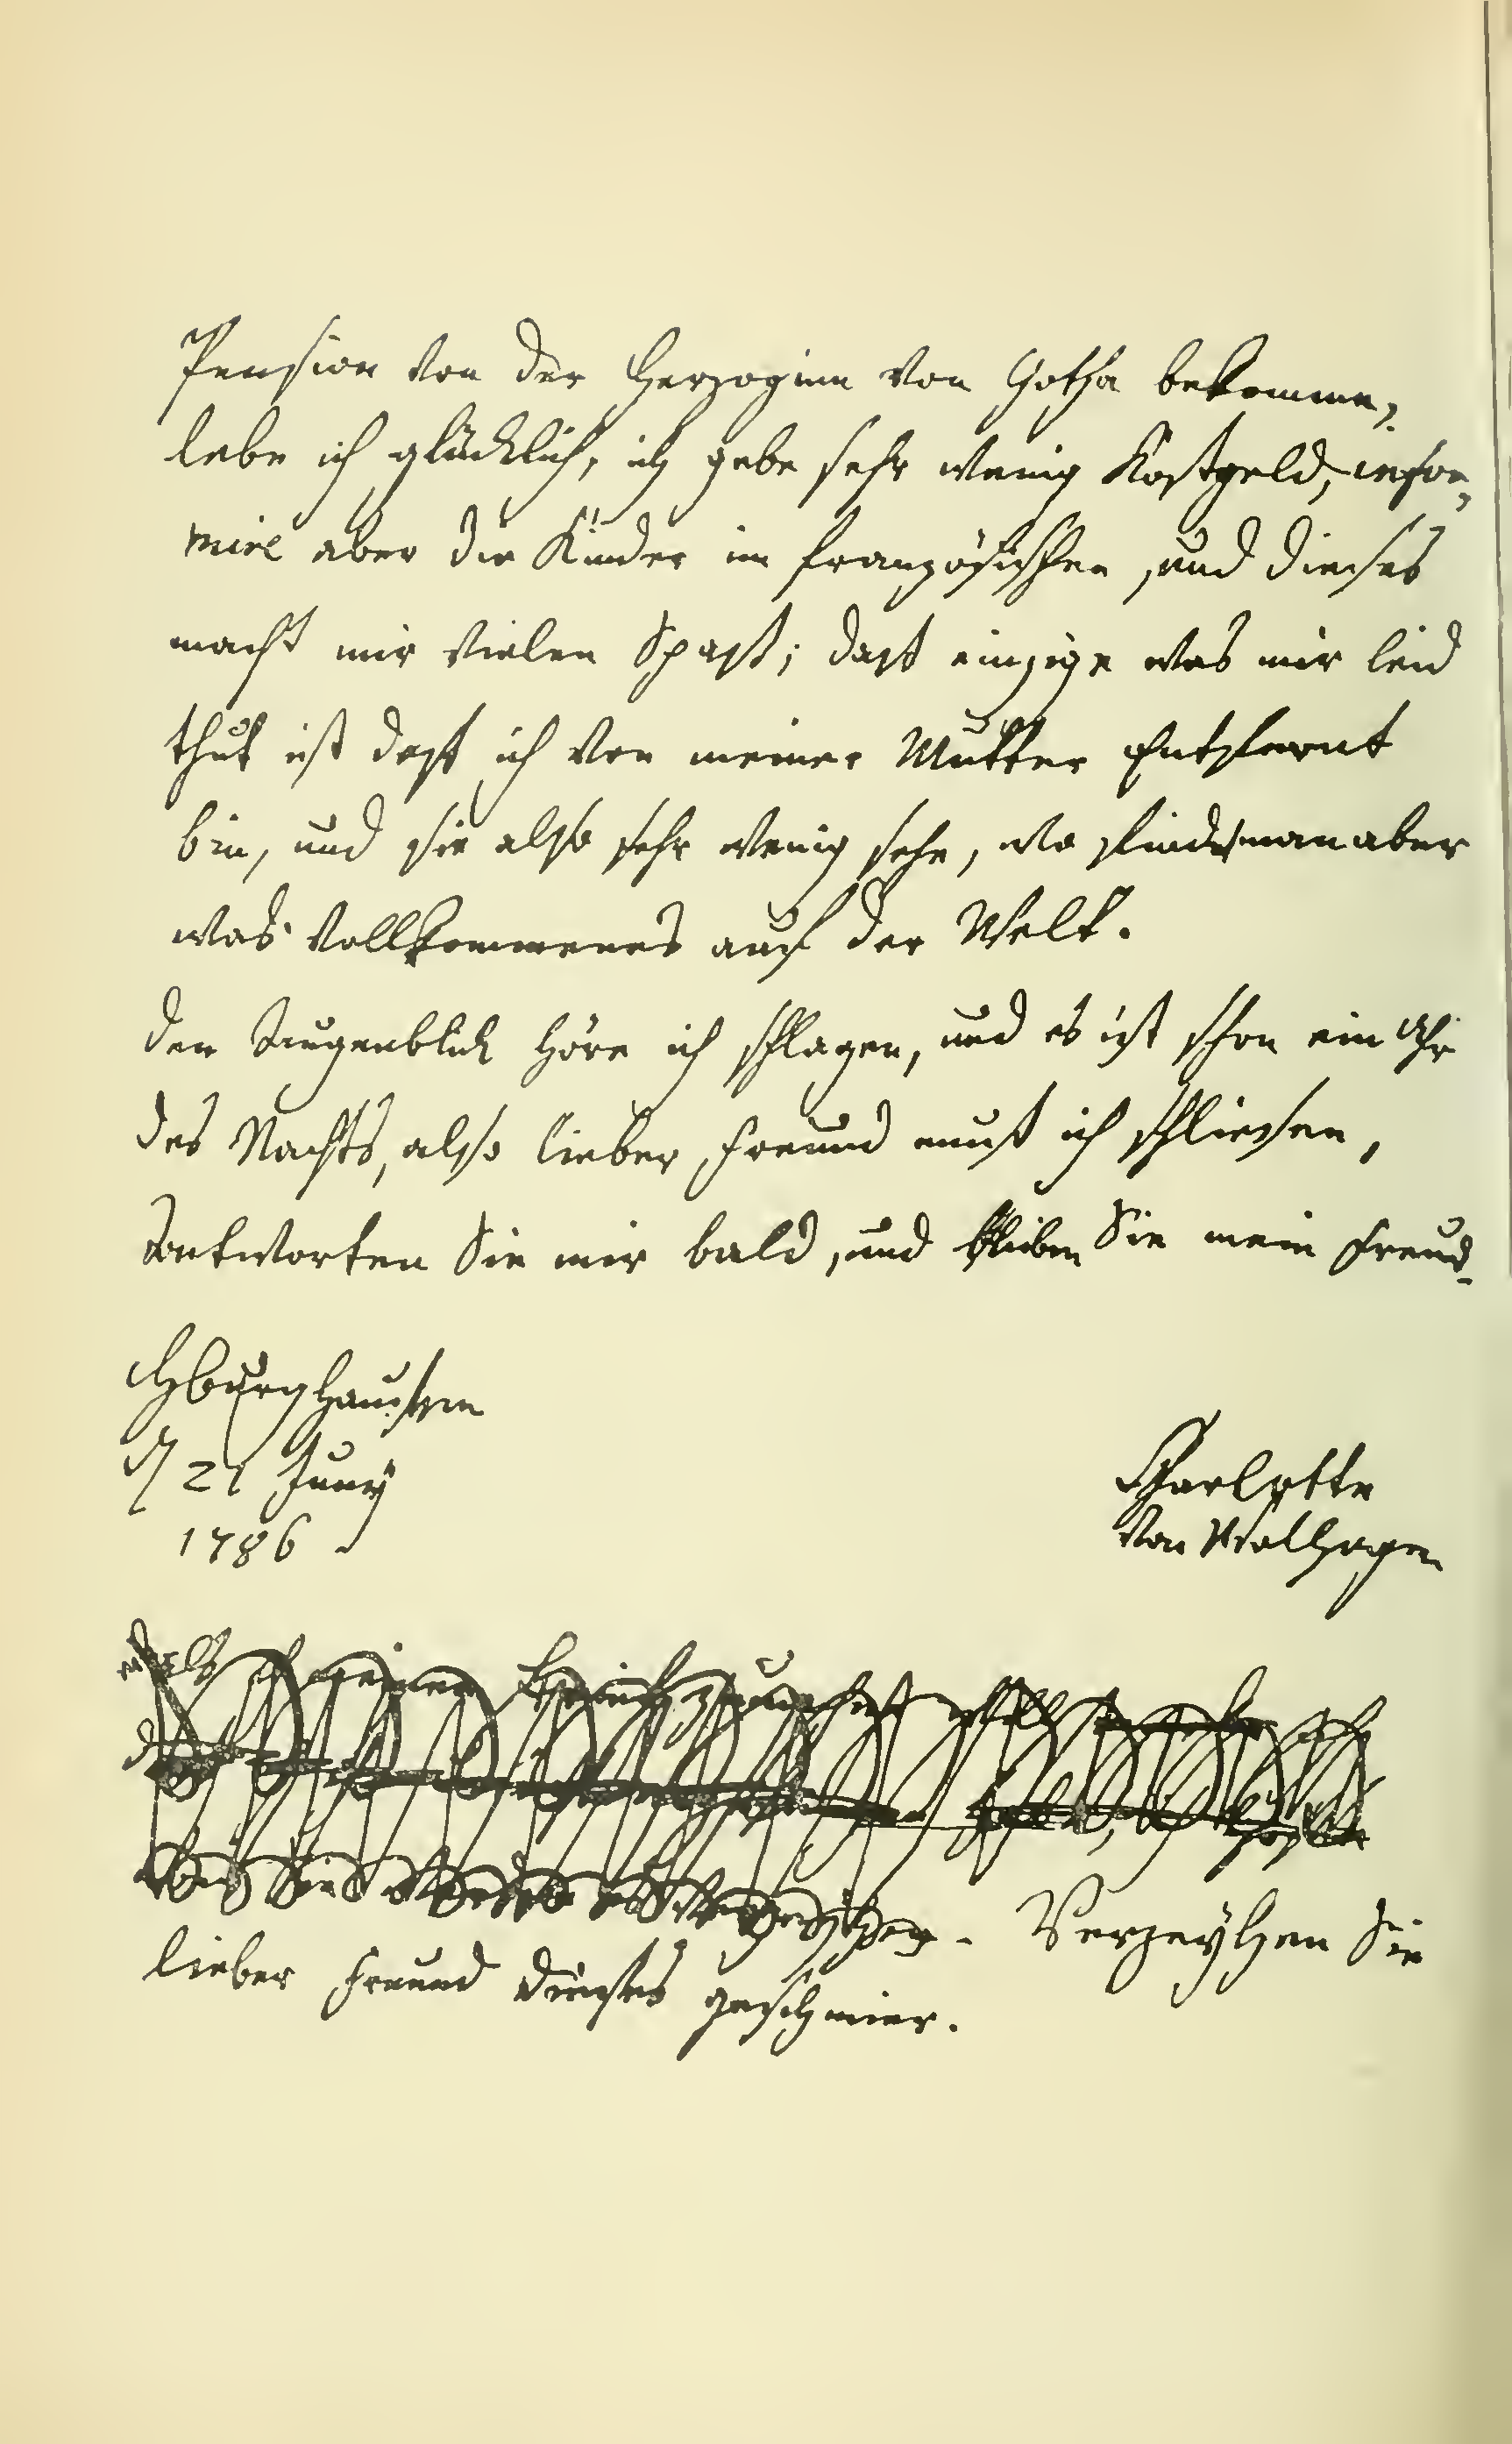 Pension von der Herzoginn von Gotha bekomme,
lebe ich glücklich, ich gebe sehr wenig Kostgeld, infor,
mire aber die Kinder im französischen, und dieses
macht mir vielen Spaß; daßt einzige was mir leid
thut ist daß ich von meiner Mutter Entfernt
bin, und sie also sehr wenig sehe, wo findet man aber
was vollkommenes auf der Welt.
den Augenblick höre ich schlagen, und es ist schon ein Uhr
des Nachts, also lieber Freund muß ich schliesen,
Antworten Sie mir bald, und bleiben Sie mein Freund
Hburghausen
d 21 Juny
1786
Charlotte
von Wolzogen
Verzeyhen Sie
lieber Freund dieses geschmier.